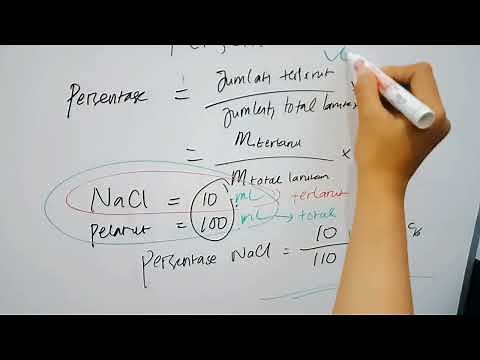 Persentase = Jumlah terlarut
Jumlah total larutan
= M terlarut ×
M total larutan
NaCl = 10 mL → terlarut
pelarut = 100 mL → total
persentase NaCl = 10 %
110